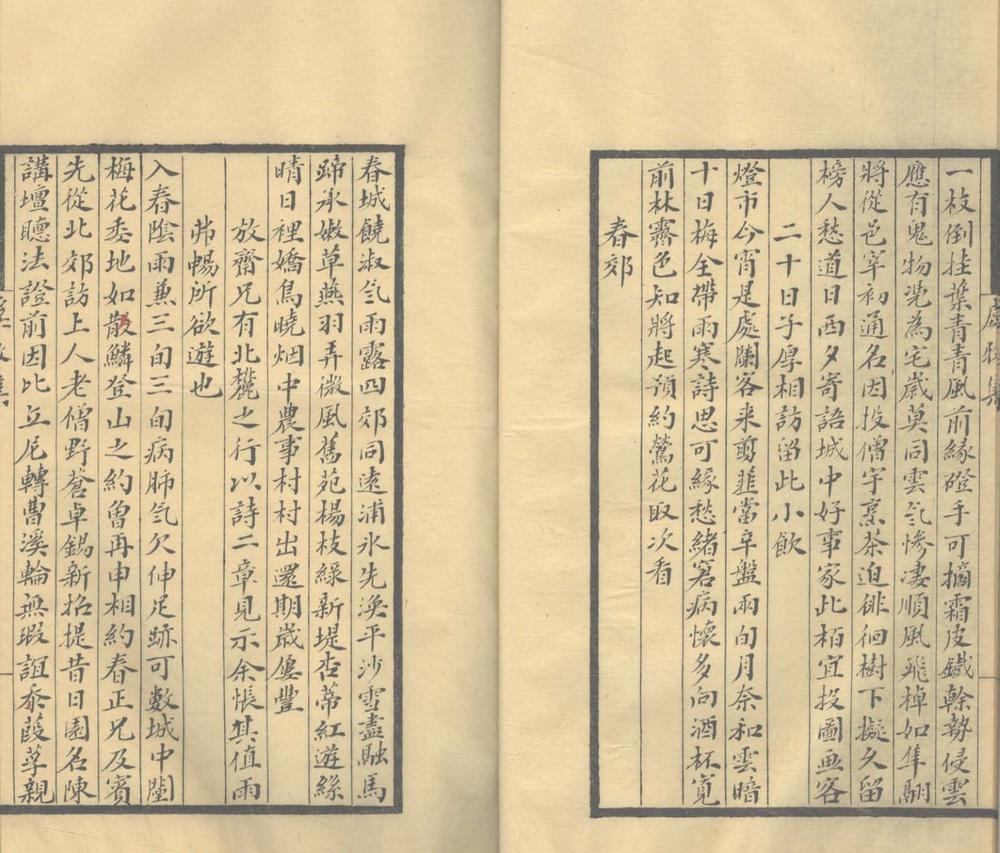 一枝倒挂葉青青風前緣磴手可摘霜皮鐵榦勢侵雲
應有鬼物凭為宅歲莫同雲气慘淒順風飛棹如隼翮
將從邑宰初通名因投僧宇烹茶迫徘徊樹下擬久留
榜人愁道日西夕寄語城中好事家此栢宜投圖画客
二十日子厚相訪畱此小飲
燈市今宵是處闌客来剪韮當辛盤兩旬月奈和雲暗
十日梅全帶雨寒詩思可緣愁緒窘病懷多向酒杯寬
前林霽色知將起預約鶯花取次看
春郊
春城饒淑气雨露四郊同遠浦冰先渙平沙雪盡融馬
蹄承嫩草燕羽弄微風舊苑楊枝綠新堤杏蒂紅遊絲
晴日裡嬌鳥曉烟中農事村村出還期歲屢豐
放齋兄有北麓之行以詩二章見示余悵其值雨
弗暢所欲遊也
入春陰雨兼三旬三旬病肺气欠伸足跡可數城中闉
梅花委地如散鱗登山之約曾再申相約春正兄及賓
先從北郊訪上人老僧野蒼卓錫新招提昔日園名陳
講壇聽法證前因比丘尼轉曹溪輪無瑕誼忝葭莩親